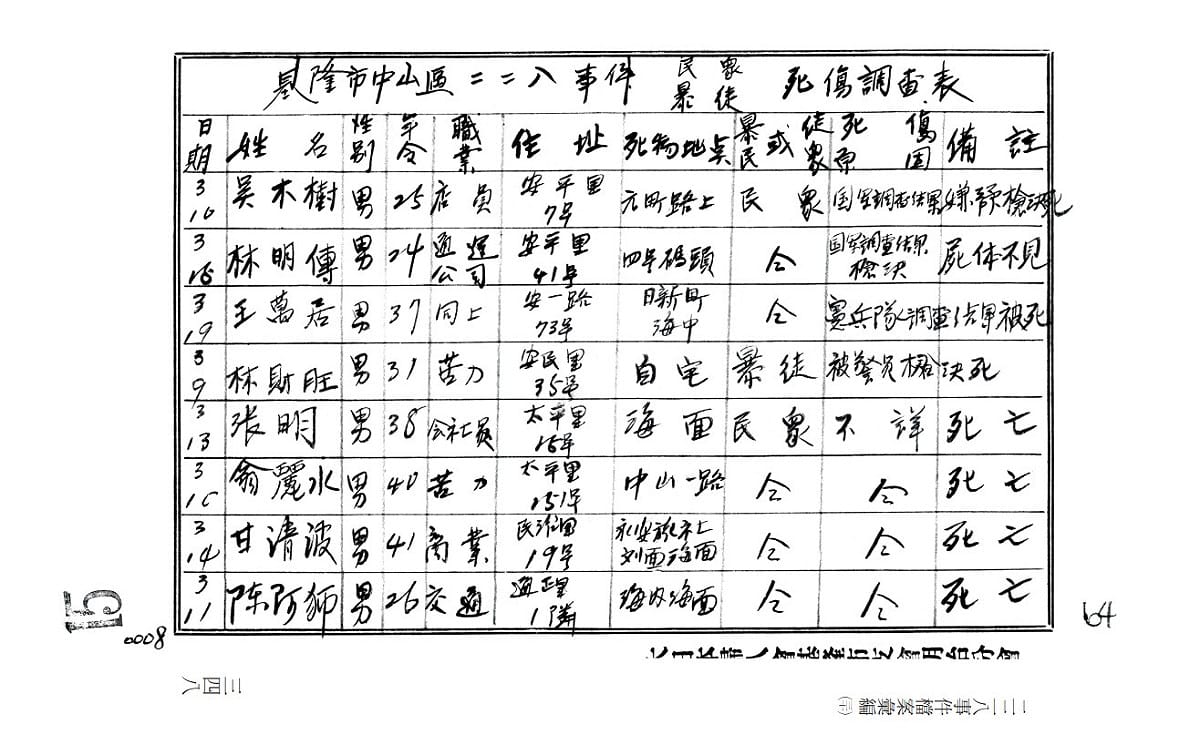 基隆市中山區二二八事件 民衆 暴徒 死傷調查表
日期 姓名 性別 年令 職業 住址 死傷地点 暴徒或民衆 死傷原因 備註
3 10 吳木樹 男 25 店員 安平里7号 元町路上 民衆 国軍調查結果 嫌疑槍決死
3 16 林明傳 男 24 通運公司 安平里41号 四号碼頭 仝 国軍調查結果槍決 屍体不見
3 19 王萬居 男 37 同上 安一路73号 日新町海中 仝 憲兵隊調查結果被死
3 9 林財旺 男 31 苦力 安民里35号 自宅 暴徒 被警員槍決死
3 13 張明 男 38 会社員 太平里16号 海面 民衆 不詳 死亡
3 翁麗水 男 40 苦力 太平里151号 中山一路 仝 仝 死亡
3 14 甘清波 男 41 商業 民治里19号 海面 仝 仝 死亡
3 11 陈阿獅 男 26 交通 1隣 海面 仝 仝 死亡
15
0008
64
三四八
二二八事件檔案彙編